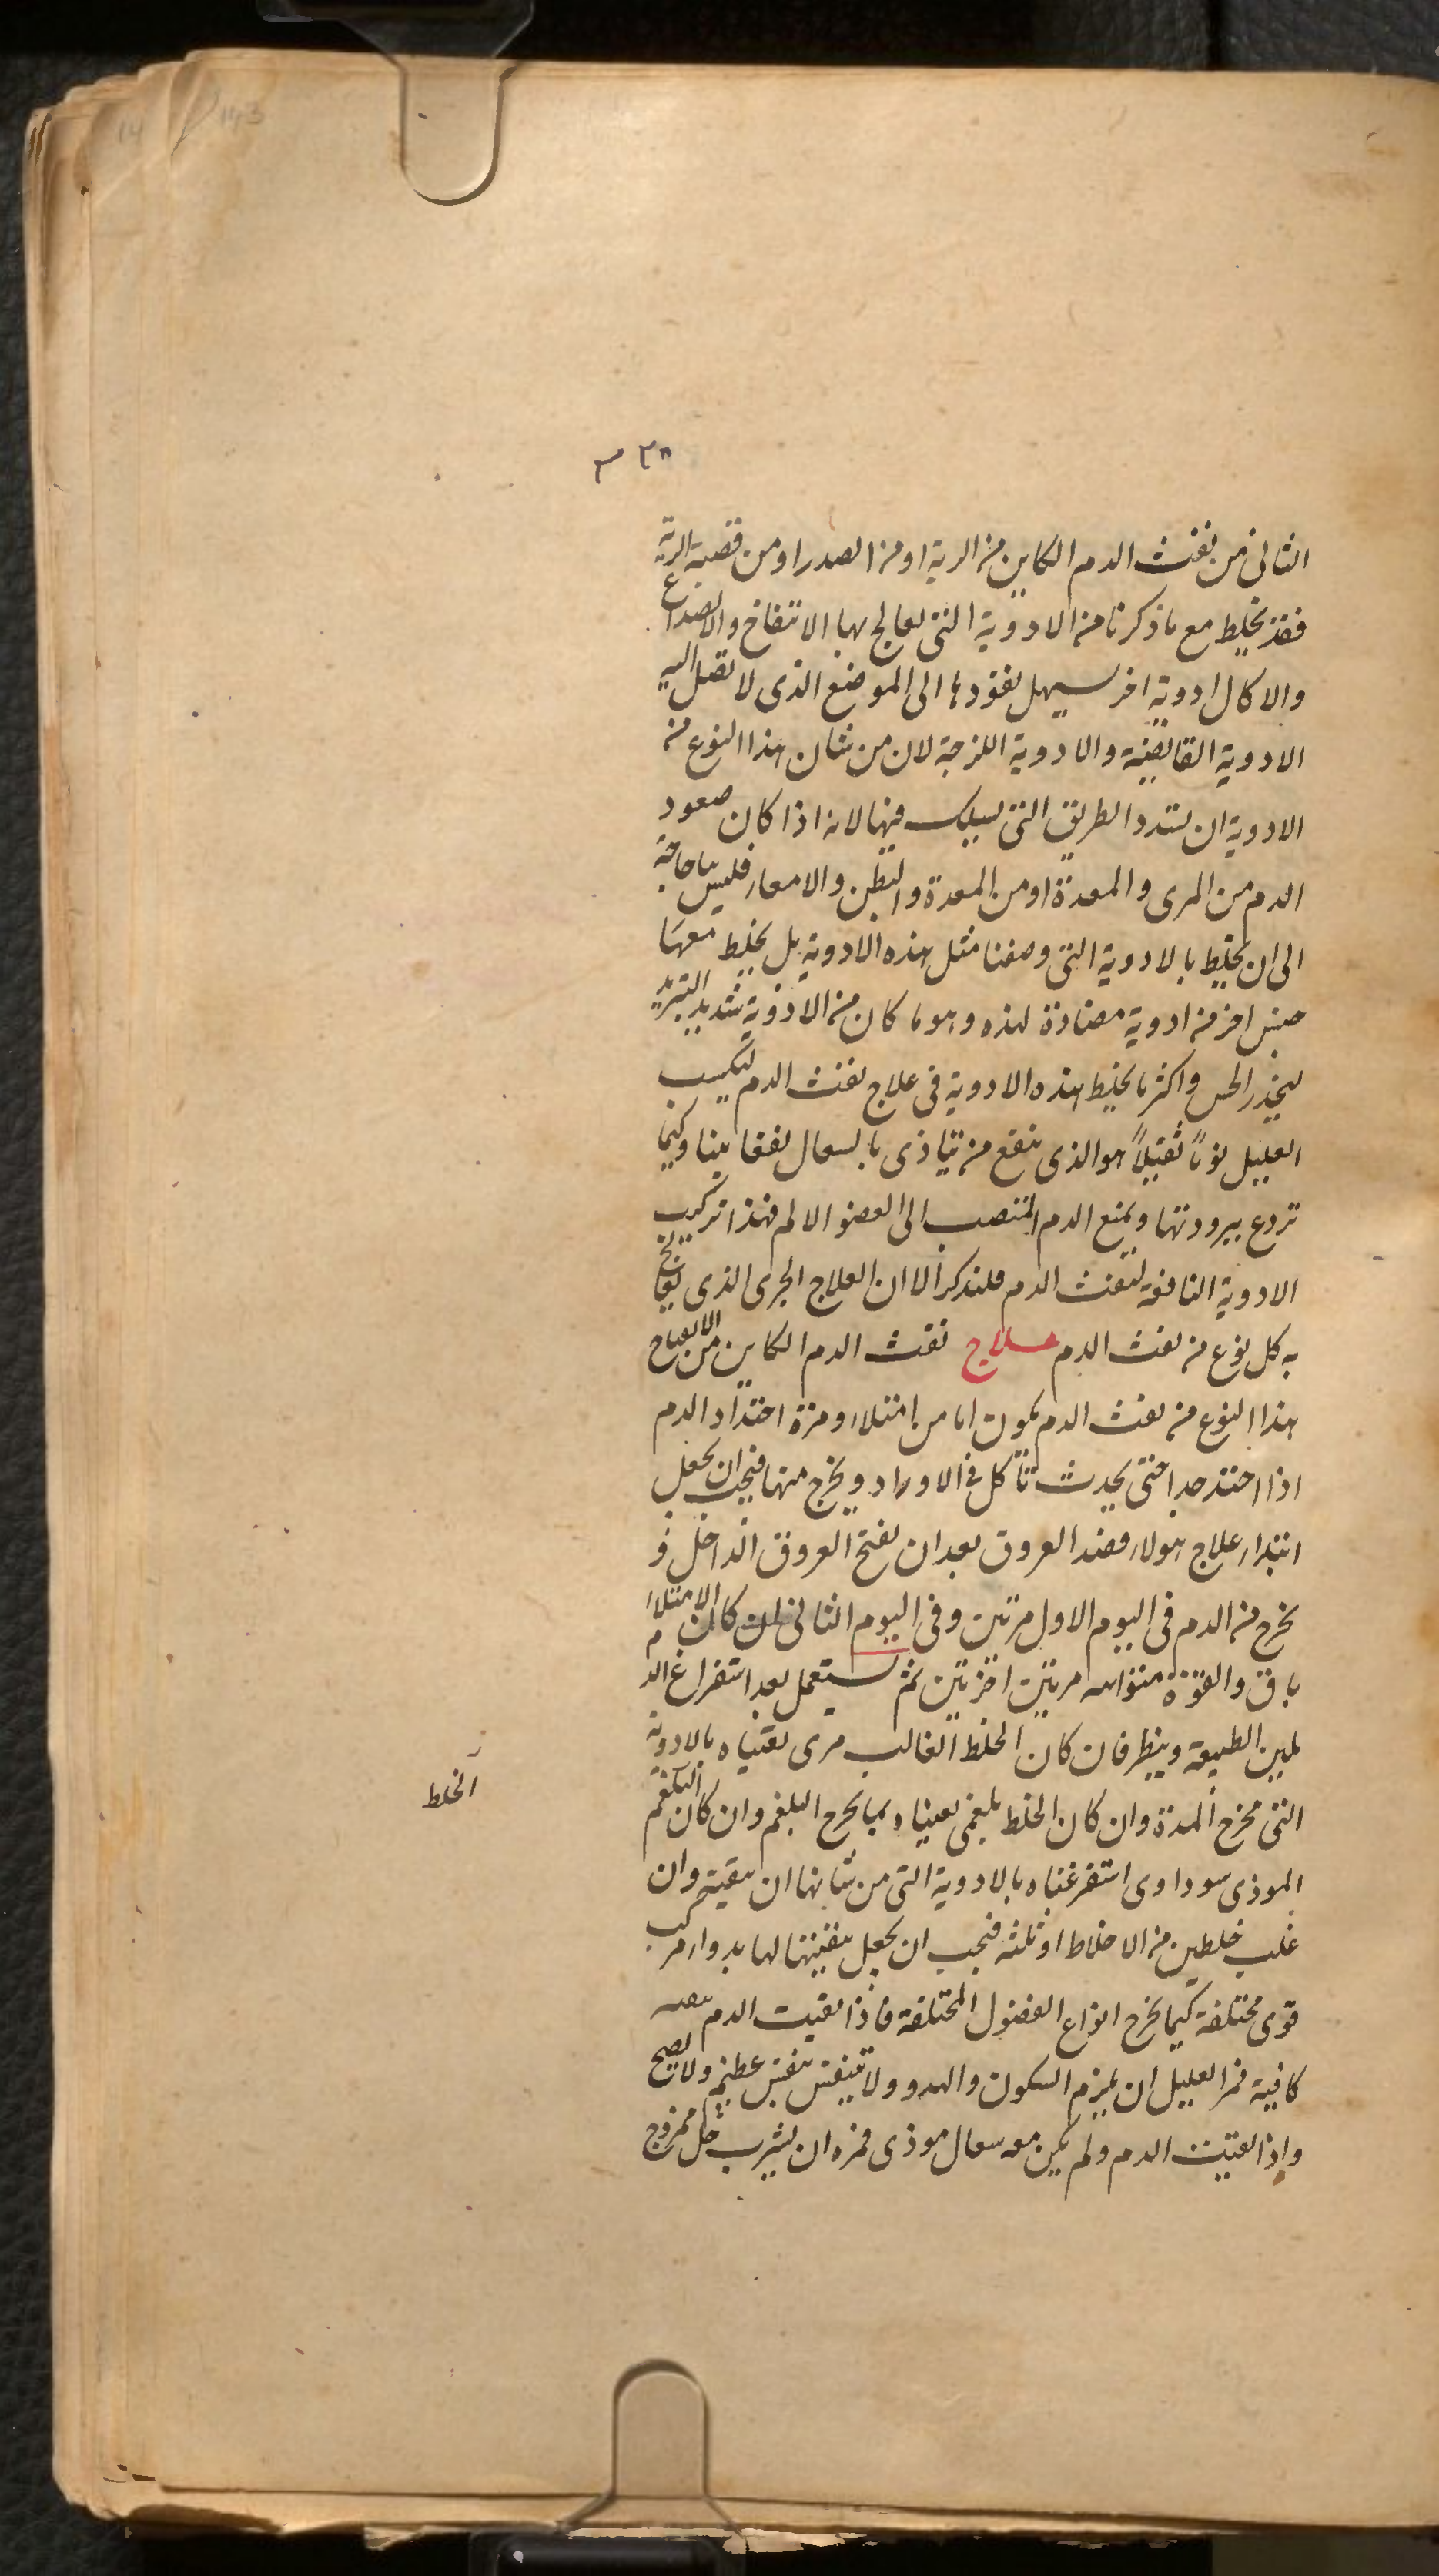 الثانى من نفث الدم الكاين من الرية او من الصدر او من قصبة الرية
فقد يخلط مع ما ذكرنا من الادوية التى يعالج بها الانتفاخ والانصداع
والاكال ادوية اخر يسهل نفوذها الى الموضع الذى لا تصل اليه
الادوية القابضة والادوية اللزجة لان من شان هذا النوع من
الادوية ان تسدد الطريق التى يسلك فيها لانه اذا كان صعود
الدم من المرى والمعدة او من المعدة والبطن والامعاء فليس بنا حاجة
الى ان يخلط بالادوية التى وصفنا مثل هذه الادوية بل يخلط معها
جنس اخر من ادوية مضادة لهذه وهو ما كان من الادوية شديد التبريد
ليخدر الحس واكثر ما يخلط هذه الادوية فى علاج نفث الدم ليكسب
العليل نوماً ثقيلاً هو الذى ينفع من يتاذى بالسعال نفعا بينا وكيما
تردع ببرودتها ويمنع الدم المنصب الى العضو الالم فهذا تركيب
الادوية النافعة لنفث الدم فلنذكر الان العلاج الجرى الذى يعالج
به كل نوع من نفث الدم علاج نفث الدم الكاين من الانفتاح
هذا النوع من نفث الدم يكون اما من امتلاء ومرة احتداد الدم
اذا احتد جدا حتى يحدث تأكل فى الاوراد ويخرج منها فيجب ان يجعل
ابتداء علاج هولاء فصد العروق بعد ان يفتح العروق الداخل و
يخرج من الدم فى اليوم الاول مرتين وفى اليوم الثانى ان كان الامتلاء
باق والقوة متواسه مرتين اخرتين ثم يستعمل بعد استفراغ الدم
تليين الطبيعة وينظر فان كان الخلط الغالب مرى نقيناه بالادوية
التى تخرج المدة وان كان الخلط بلغمى نقيناه بما يخرج البلغم وان كان البلغم
الخلط
الموذى سوداوى استفرغناه بالادوية التى من شانها ان تنقيته وان
غلب خلطين من الاخلاط او ثلثه فيجب ان يجعل تنقيتها لها بدواء مركب
قوى مختلفة كيما يخرج انواع الفضول المختلفة فاذا نقيت الدم تنقيه
كافية فمر العليل ان يلزم السكون والهدو ولا يتنفس تنفس عظيم ولا يصيح
واذا نقيت الدم ولم يكن معه سعال موذى فمره ان يشرب خل ممزوج